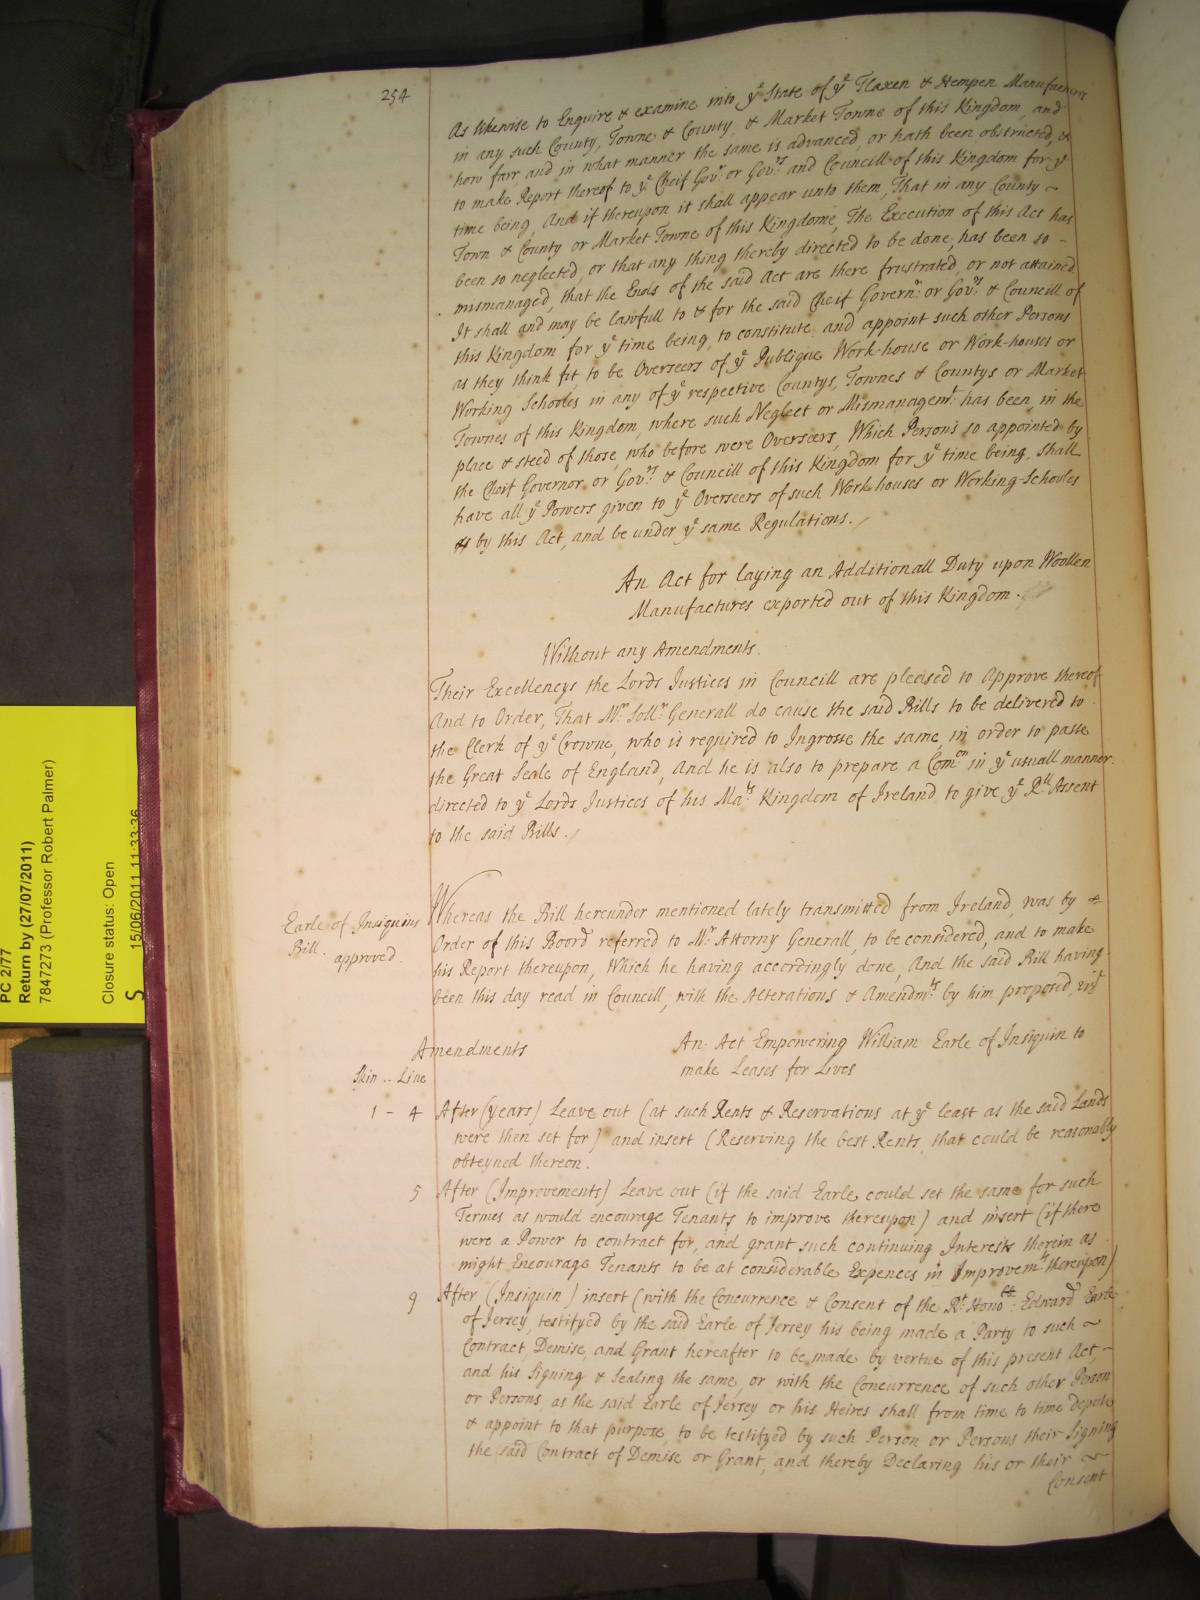 254
As likewise to Enquire & examine into yᵉ State of yᵉ Flaxen & Hempen Manufactures
in any such County, Towne & County, & Market Towne of this Kingdom, and
how farr, and in what manner the same is advanced, or hath been obstructed, &
to make Report thereof to yᵉ Cheif Govʳ or Govʳˢ and Councill of this Kingdom for yᵉ
time being, And if thereupon it shall appear unto them, That in any County ~
Town & County or Market Towne of this Kingdome, The Execution of this Act has
been so neglected, or that any thing thereby directed to be done, has been so -
mismanaged, that the Ends of the said Act are there frustrated, or not attained
It shall and may be lawfull to & for the said Cheif Governʳ: or Govʳˢ & Councill of
this Kingdom for yᵉ time being, to constitute and appoint such other Persons
as they think fit, to be Overseers of yᵉ Publique Work-house or Work-houses or
Working Schooles in any of yᵉ respective Countys, Townes & Countys or Market
Townes of this Kingdom, where such Neglect or Mismanagemᵗ: has been, in the
place & steed of those, who before were Overseers, Which Persons so appointed by
the Cheif Governor or Govʳˢ & Councill of this Kingdom for yᵉ time being, shall
have all yᵉ Powers given to yᵉ Overseers of such Work houses or Working-Schooles
by this Act, and be under yᵉ same Regulations.
An Act for laying an Additionall Duty upon Woollen
Manufactures exported out of this Kingdom.
Without any Amendments.
Their Excellencys the Lords Justices in Councill are pleased to Approve thereof
And to Order, That Mʳ Sollʳ Generall do cause the said Bills to be delivered to
the Clerk of yᵉ Crowne, who is required to Ingrosse the same, in order to passe
the Great Seale of England, And he is also to prepare a Comᵒⁿ in yᵉ usuall manner
directed to yᵉ Lords Justices of his Maᵗˢ Kingdom of Ireland to give yᵉ Rˡˡ Assent
to the said Bills.
Earle of Insiquins
Bill.
approved.
Whereas the Bill hereunder mentioned lately transmitted from Ireland, was by
Order of this Board referred to Mʳ Attorny Generall, to be considered, and to make
his Report thereupon, Which he having accordingly done, And the said Bill having
been this day read in Councill, with the Alterations & Amendmᵗˢ by him proposed, vizᵗ
Amendments
An Act Empowering William Earle of Insiquin to
make Leases for Lives
Skin .. Line
1 - 4 After (years) Leave out (at such Rents & Reservations at yᵉ least as the said Lands
were then set for) and insert (Reserving the best Rents, that could be reasonably
obteyned thereon.
5 After (Improvements) Leave out (if the said Earle could set the same for such
Termes as would encourage Tenants to improve thereupon) and insert (if there
were a Power to contract for, and grant such continuing Interests therein as
might Encourage Tenants to be at considerable Expences in Improvemᵗˢ thereupon)
9 After (Insiquin) insert (with the Concurrence & Consent of the Rᵗ Honoᵇˡᵉ: Edward Earle
of Jersey, testifyed by the said Earle of Jersey his being made a Party to such ~
Contract, Demise, and Grant hereafter to be made by vertue of this present Act, ~
and his Signing & Sealing the same, or with the Concurrence of such other Person
or Persons, as the said Earle of Jersey or his Heires shall from time to time depute
& appoint to that purpose, to be testifyed by such Person or Persons their Signing
the said Contract of Demise or Grant, and thereby Declaring his or their ~
Consent
PC 2/77
Return by (27/07/2011)
7847273 (Professor Robert Palmer)
Closure status: Open
S 15/06/2011 11:33:36